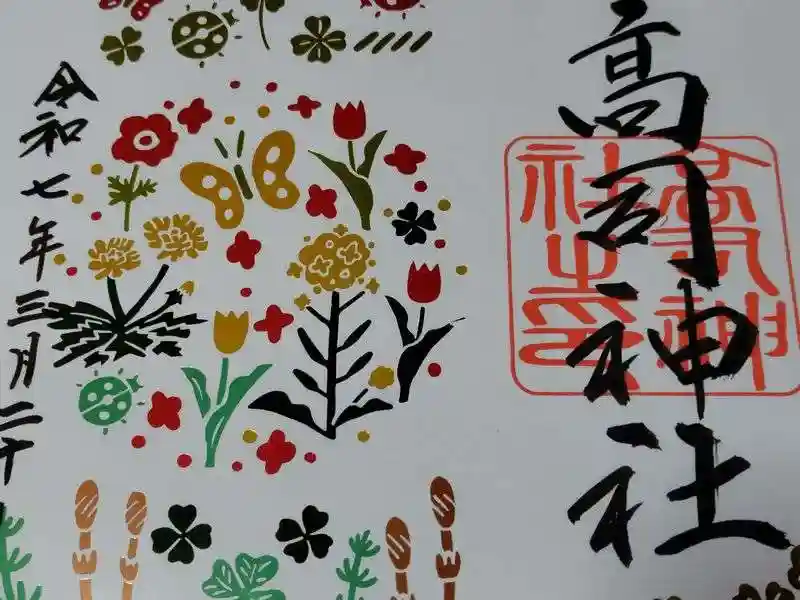 高司神社
高司神社之印
令和七年三月二十